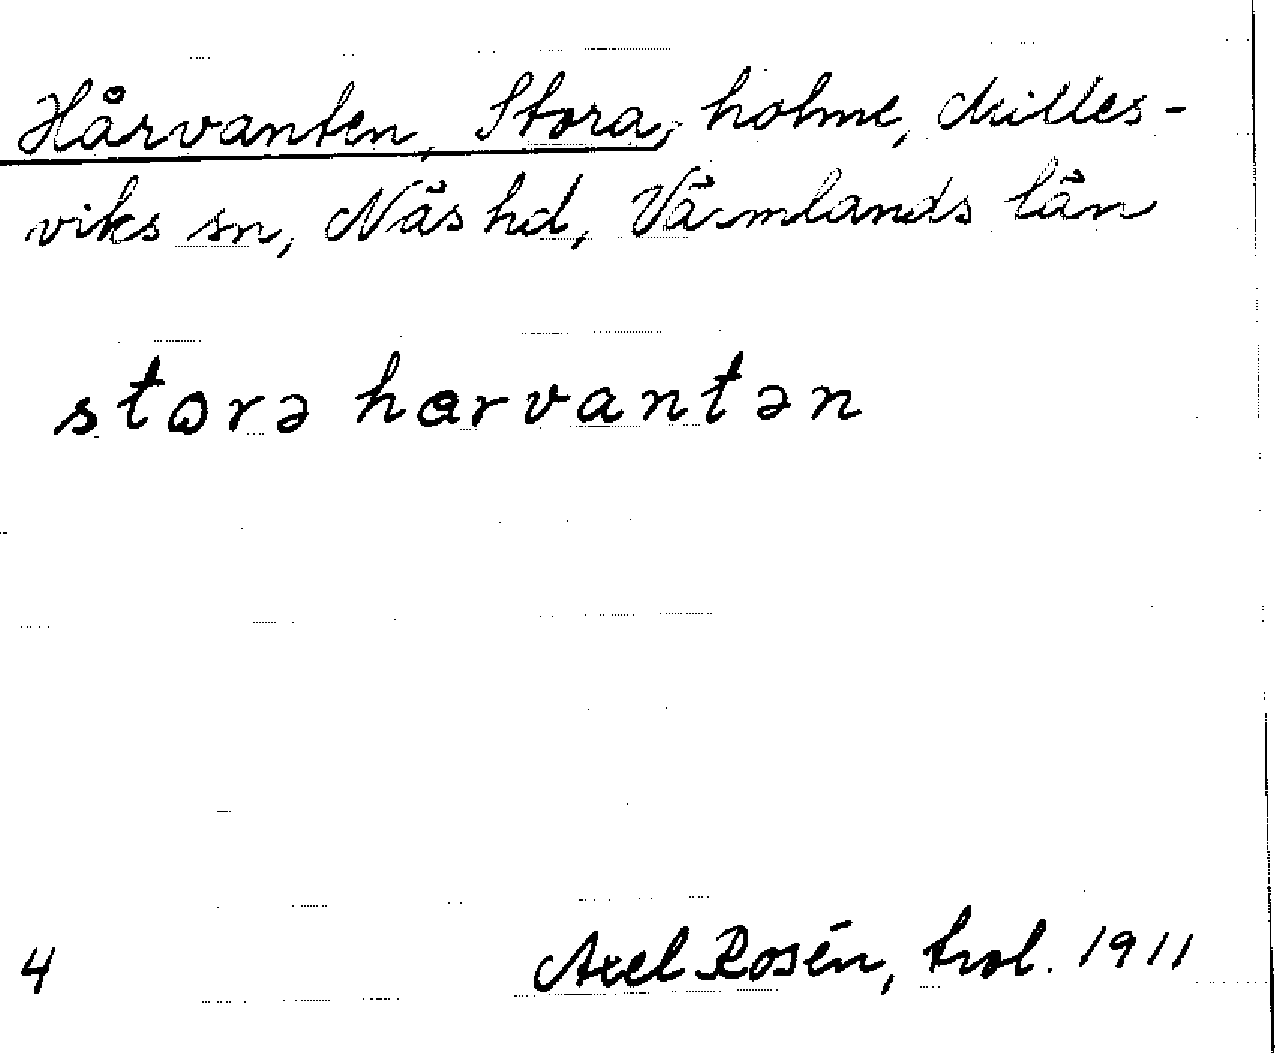 Hårvanten, Stora, holme, Milles-
viks sn, Näs hd, Värmlands län
storə harvantən
4 Axel Rosén, trol. 1911